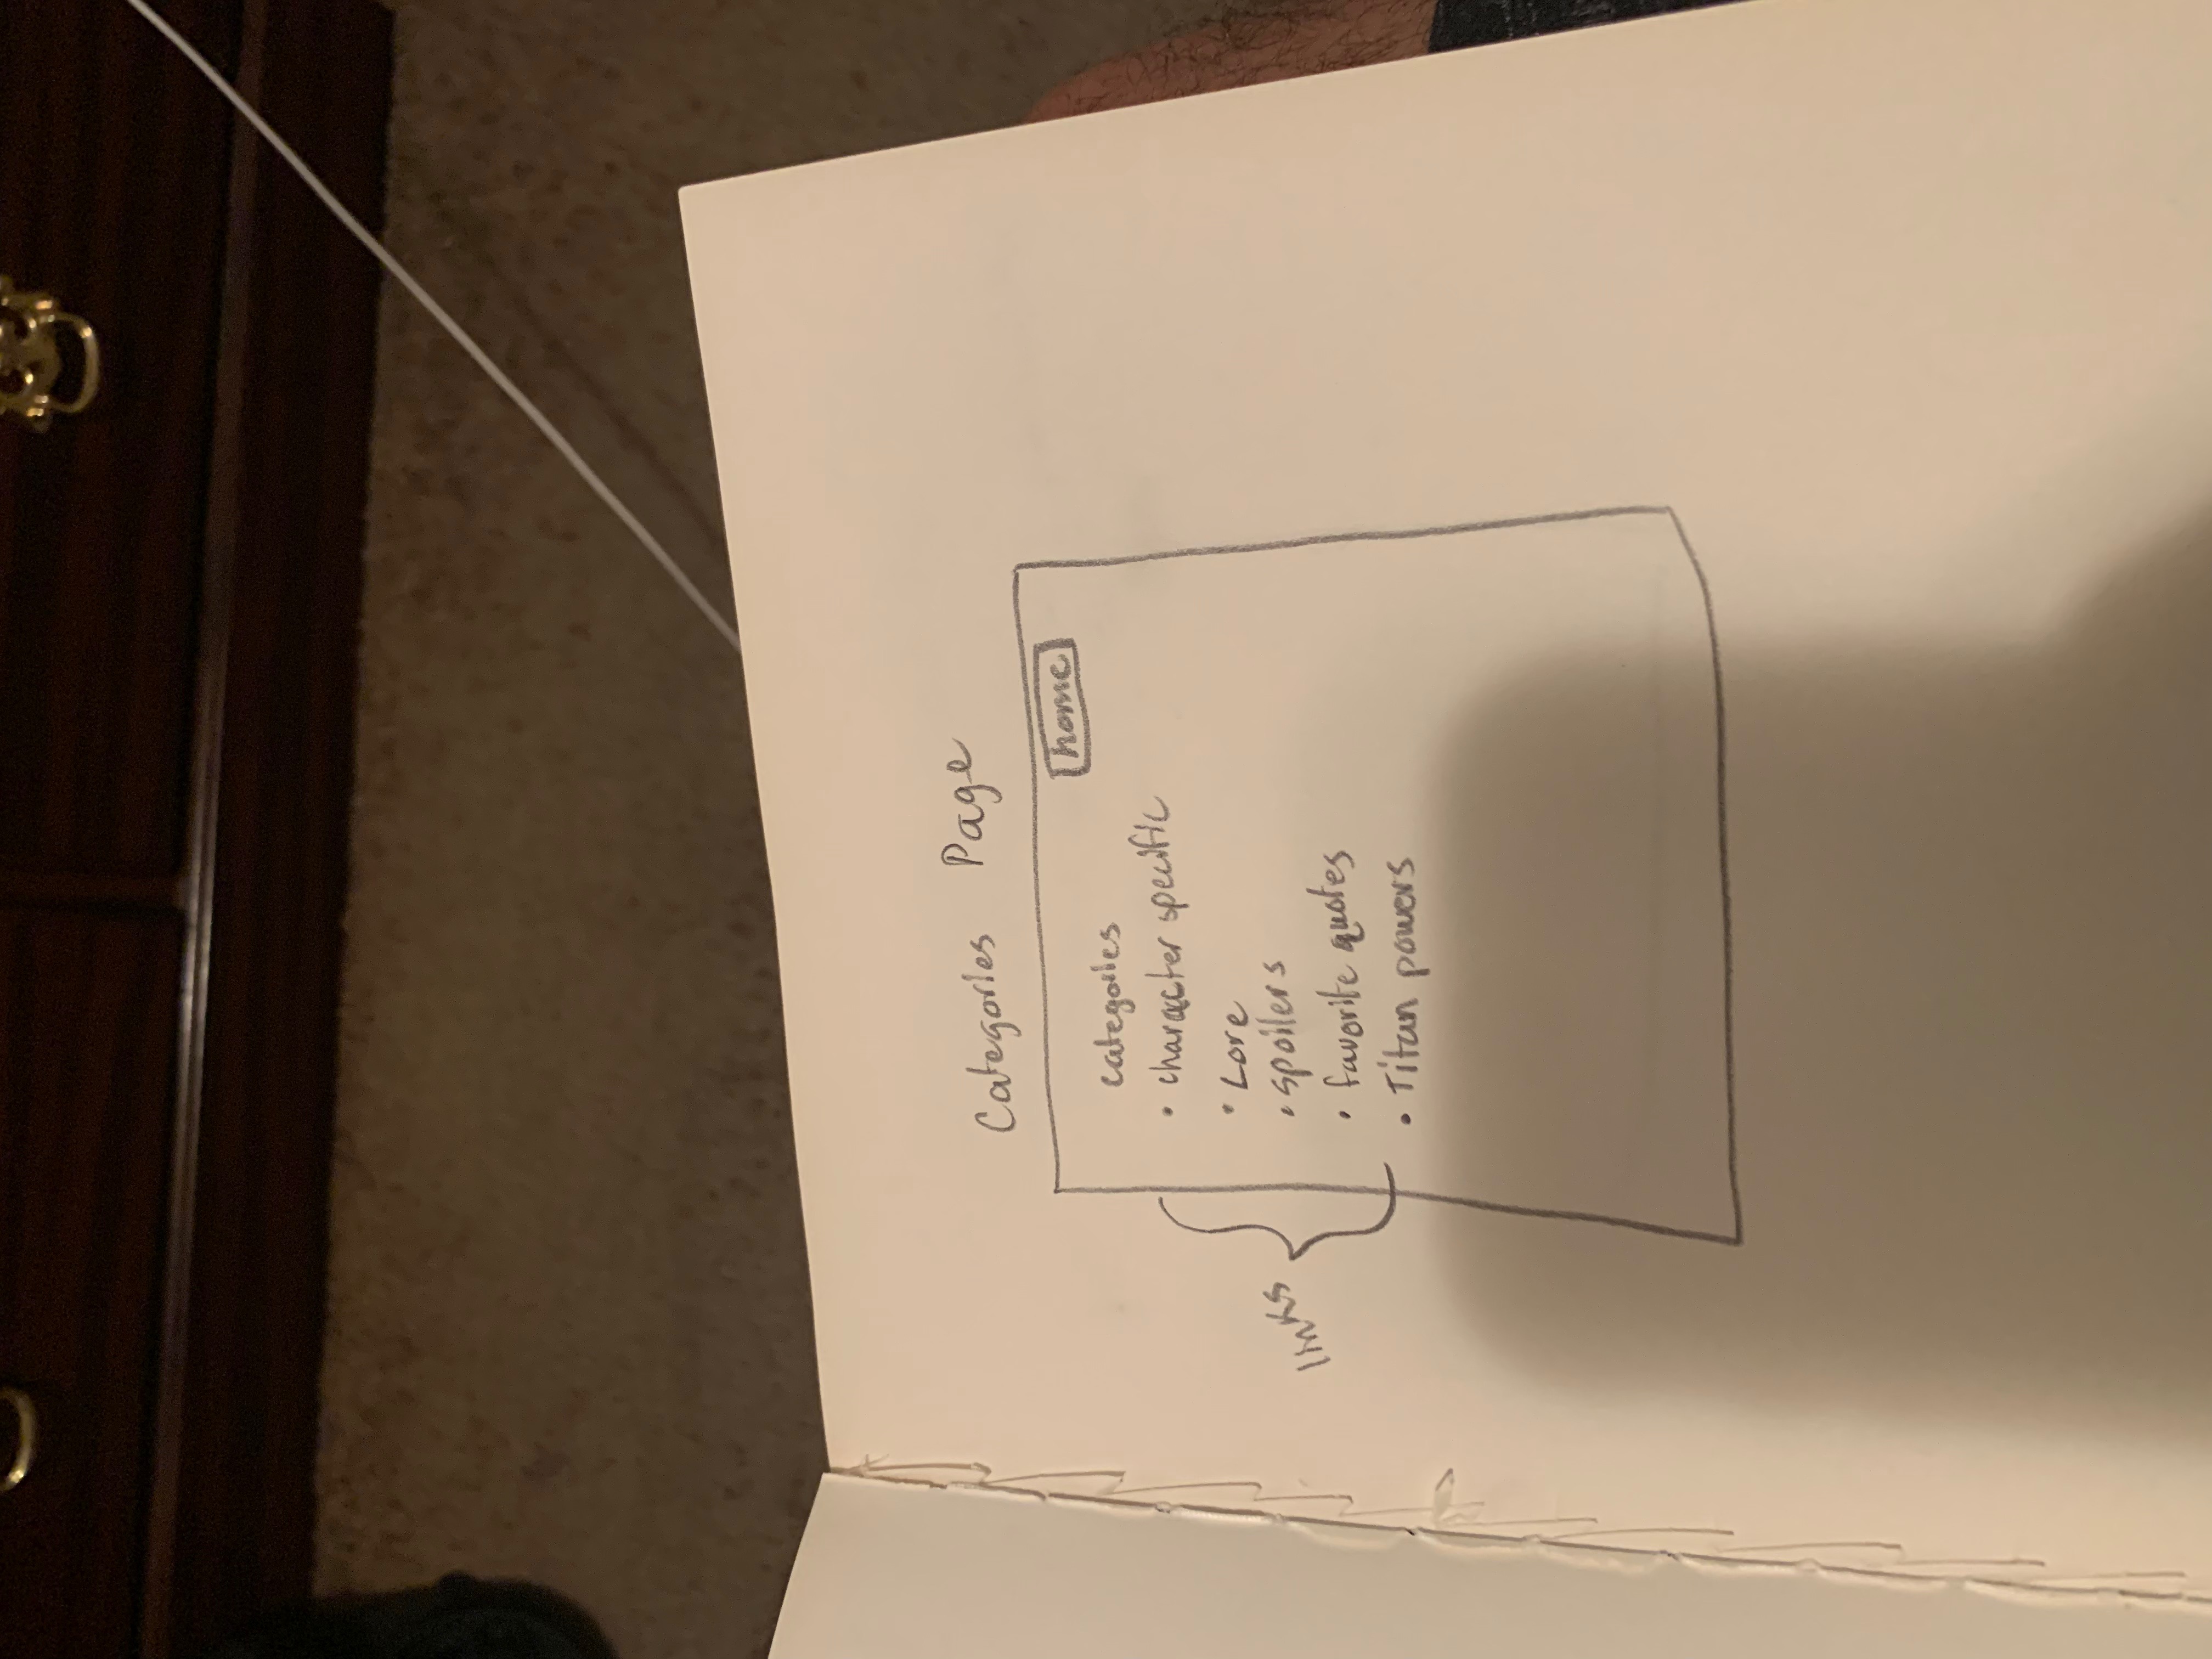 Categories Page
home
categories
• character specific
• Lore
• spoilers
links
• favorite quotes
• Titan powers